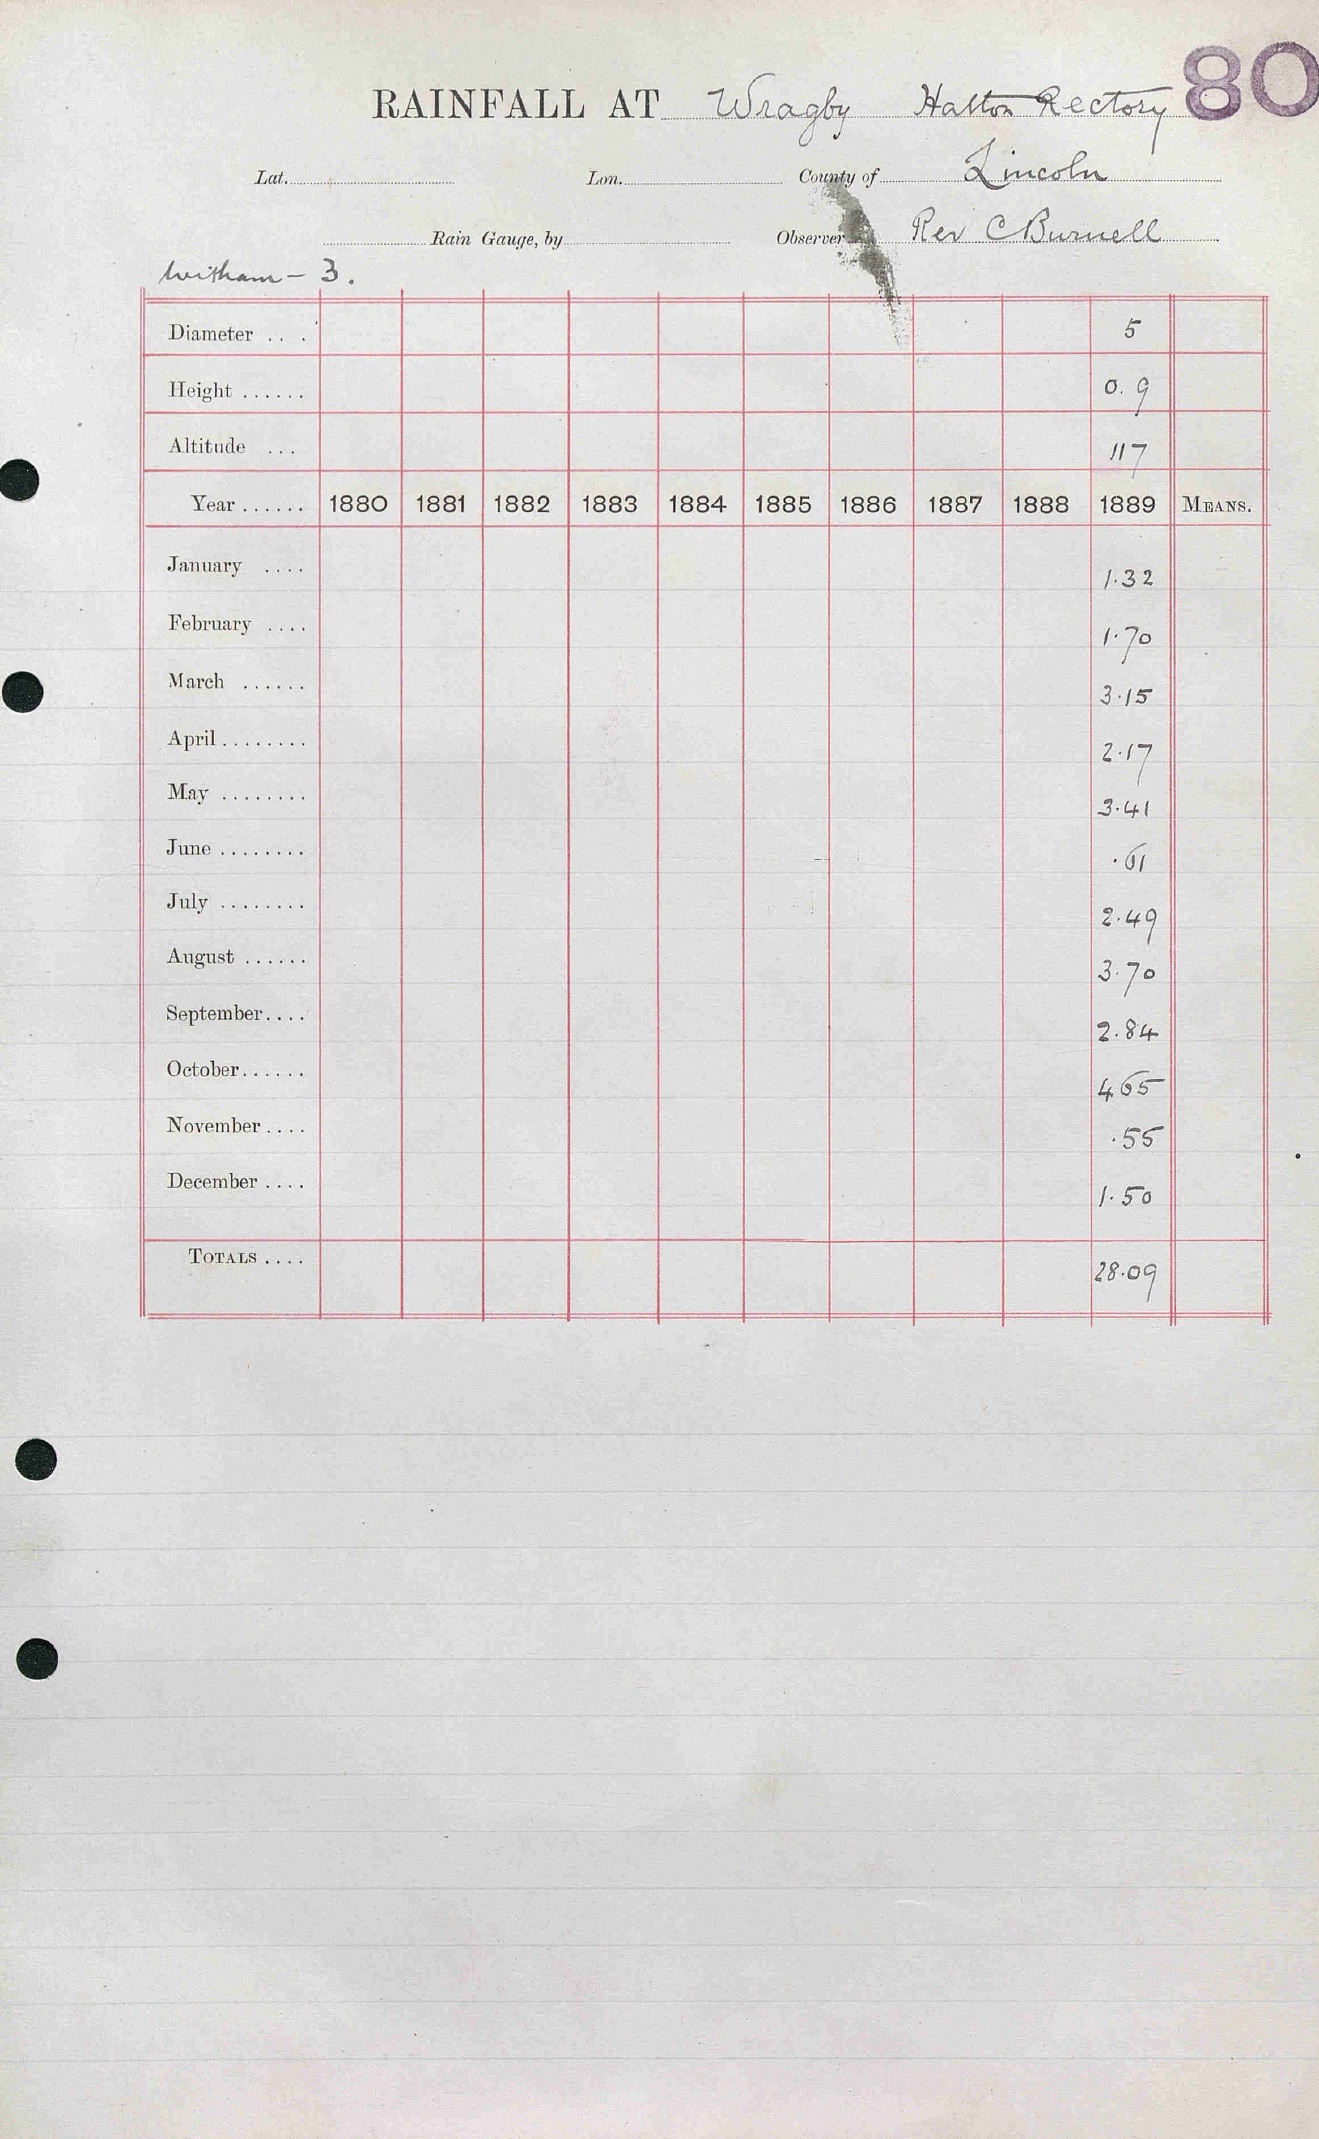 80
RAINFALL AT Wragby Hatton Rectory
Lat. Lon. County of Lincoln
Rain Gauge, by Observer Rev C Burnell
Witham - 3.
Diameter . . . 5
Height ...... 0. 9
Altitude ... 117
Year ...... 1880 1881 1882 1883 1884 1885 1886 1887 1888 1889 MEANS.
January .... 1.32
February .... 1.70
March ...... 3.15
April ........ 2.17
May ........ 3.41
June ........ .61
July ........ 2.49
August ...... 3.70
September.... 2.84
October...... 4.65
November .... .55
December .... 1.50
TOTALS .... 28.09